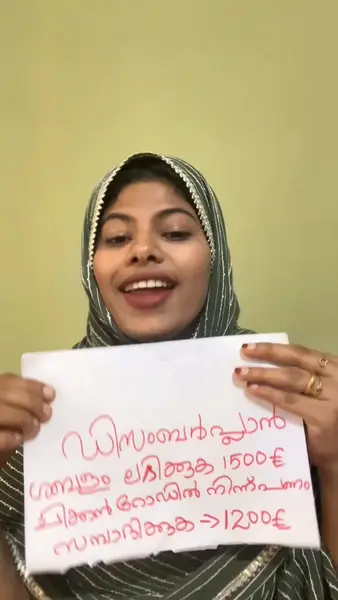 ഡിസംബർപ്ലാൻ
ശമ്പളം ലഭിക്കുക 1500€
ചിക്കൻ റോഡിൽ നിന്ന് പണം
സമ്പാദിക്കുക → 1200€